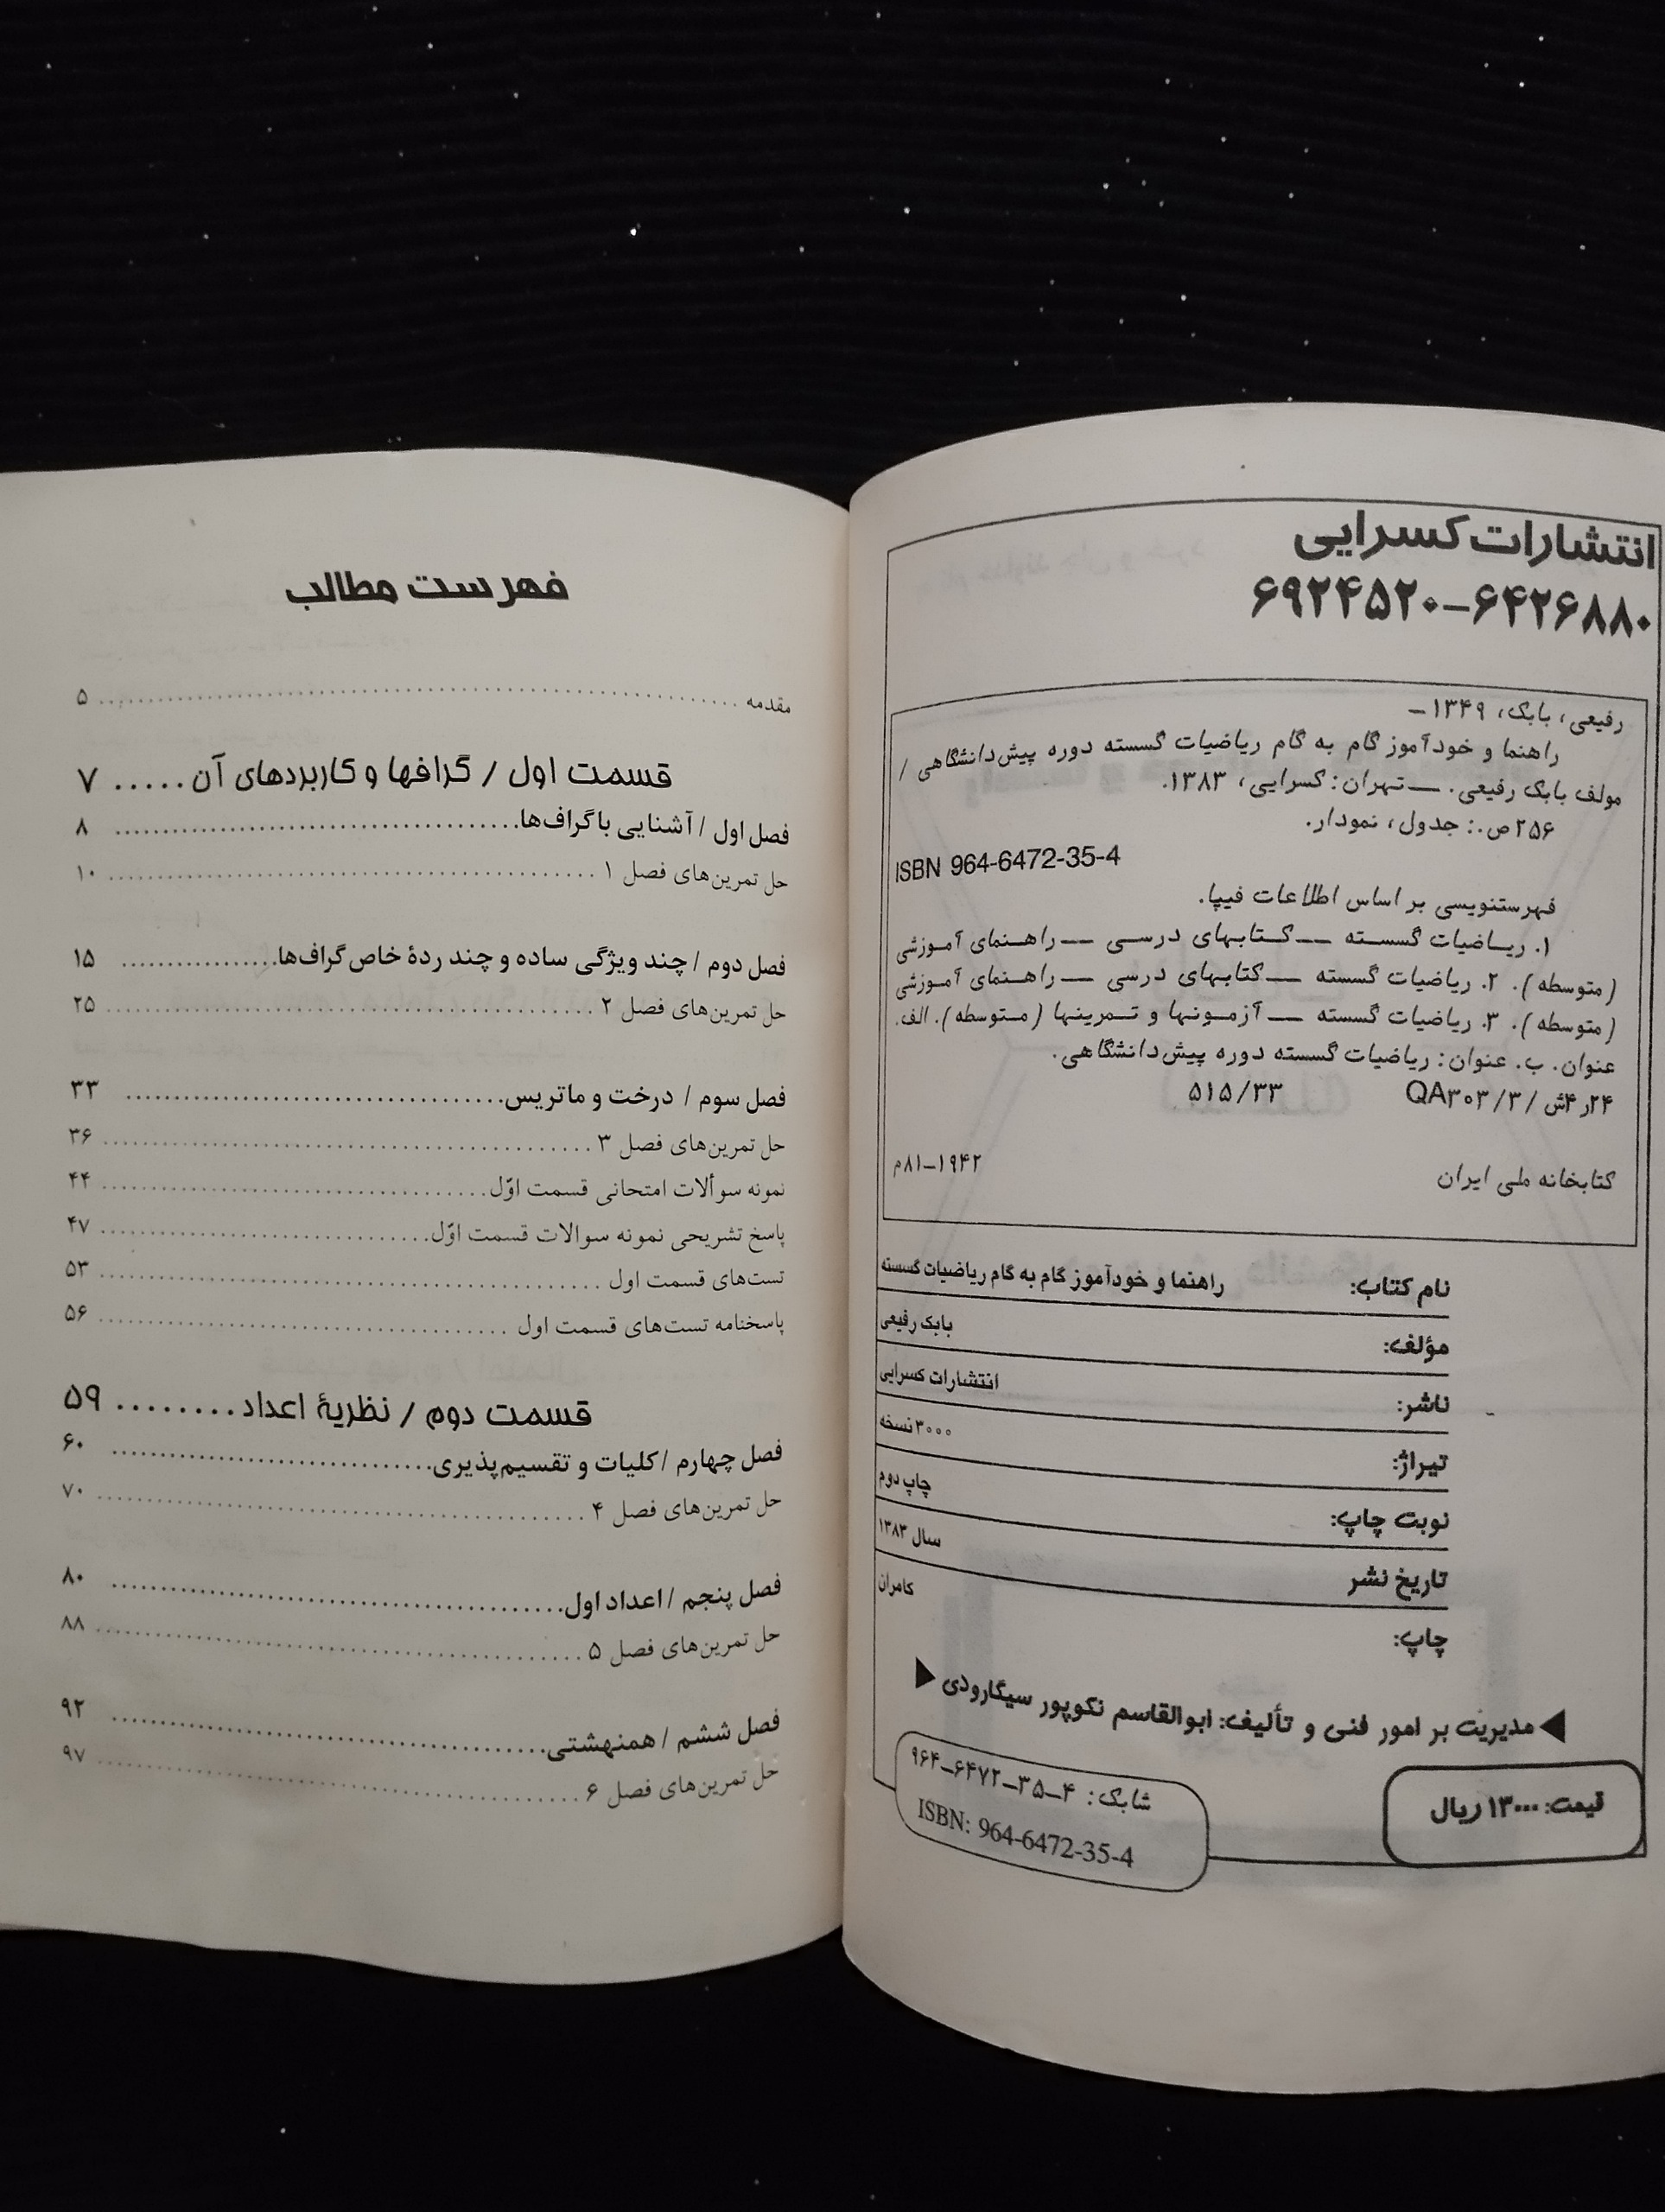 انتشارات کسرایی
۶۹۲۴۵۲۰-۶۴۲۶۸۸۰
رفیعی، بابک، ۱۳۴۹-
راهنما و خودآموز گام به گام ریاضیات گسسته دوره پیش‌دانشگاهی /
مولف بابک رفیعی. — تهران: کسرایی، ۱۳۸۳.
۲۵۶ص.: جدول، نمودار.
ISBN 964-6472-35-4
فهرستنویسی بر اساس اطلاعات فیپا.
۱. ریاضیات گسسته — کتابهای درسی — راهنمای آموزشی
(متوسطه). ۲. ریاضیات گسسته — کتابهای درسی — راهنمای آموزشی
(متوسطه). ۳. ریاضیات گسسته — آزمونها و تمرینها (متوسطه). الف.
عنوان. ب. عنوان: ریاضیات گسسته دوره پیش‌دانشگاهی.
۲۴ر۴ش /۳/ QA۳۰۳ ۵۱۵/۳۳
کتابخانه ملی ایران ۱۹۴۲-۸۱م
نام کتاب: راهنما و خودآموز گام به گام ریاضیات گسسته
مؤلف: بابک رفیعی
ناشر: انتشارات کسرایی
تیراژ: ۳۰۰۰ نسخه
نوبت چاپ: چاپ دوم
تاریخ نشر سال ۱۳۸۳
چاپ: کامران
◀ مدیریت بر امور فنی و تألیف: ابوالقاسم نکوپور سیگارودی ▶
قیمت: ۱۳۰۰۰ ریال
شابک: ۴-۳۵-۶۴۷۲-۹۶۴
ISBN: 964-6472-35-4
فهرست مطالب
مقدمه ........ ۵
قسمت اول / گرافها و کاربردهای آن ..... ۷
فصل اول / آشنایی با گراف‌ها ........ ۸
حل تمرین‌های فصل ۱ ........ ۱۰
فصل دوم / چند ویژگی ساده و چند ردهٔ خاص گراف‌ها ........ ۱۵
حل تمرین‌های فصل ۲ ........ ۲۵
فصل سوم / درخت و ماتریس ........ ۳۳
حل تمرین‌های فصل ۳ ........ ۳۶
نمونه سوألات امتحانی قسمت اوّل ........ ۴۴
پاسخ تشریحی نمونه سوالات قسمت اوّل ........ ۴۷
تست‌های قسمت اول ........ ۵۳
پاسخنامه تست‌های قسمت اول ........ ۵۶
قسمت دوم / نظریهٔ اعداد ........ ۵۹
فصل چهارم / کلیات و تقسیم‌پذیری ........ ۶۰
حل تمرین‌های فصل ۴ ........ ۷۰
فصل پنجم / اعداد اول ........ ۸۰
حل تمرین‌های فصل ۵ ........ ۸۸
فصل ششم / همنهشتی ........ ۹۲
حل تمرین‌های فصل ۶ ........ ۹۷